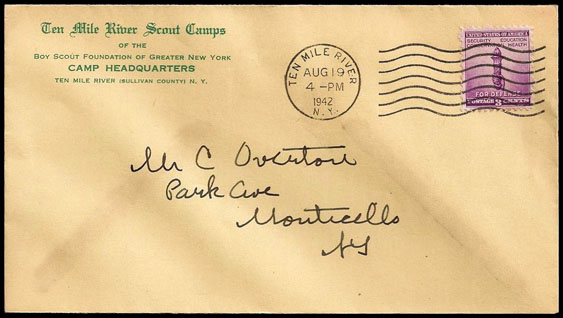 Ten Mile River Scout Camps
OF THE
BOY SCOUT FOUNDATION OF GREATER NEW YORK
CAMP HEADQUARTERS
TEN MILE RIVER (SULLIVAN COUNTY) N. Y.
TEN MILE RIVER
AUG 19
4 - PM
1942
N.Y.
UNITED STATES OF AMERICA
SECURITY EDUCATION
CONSERVATION HEALTH
FOR DEFENSE
POSTAGE 3 CENTS
Mr C Overton
Park Ave
Monticello
NY